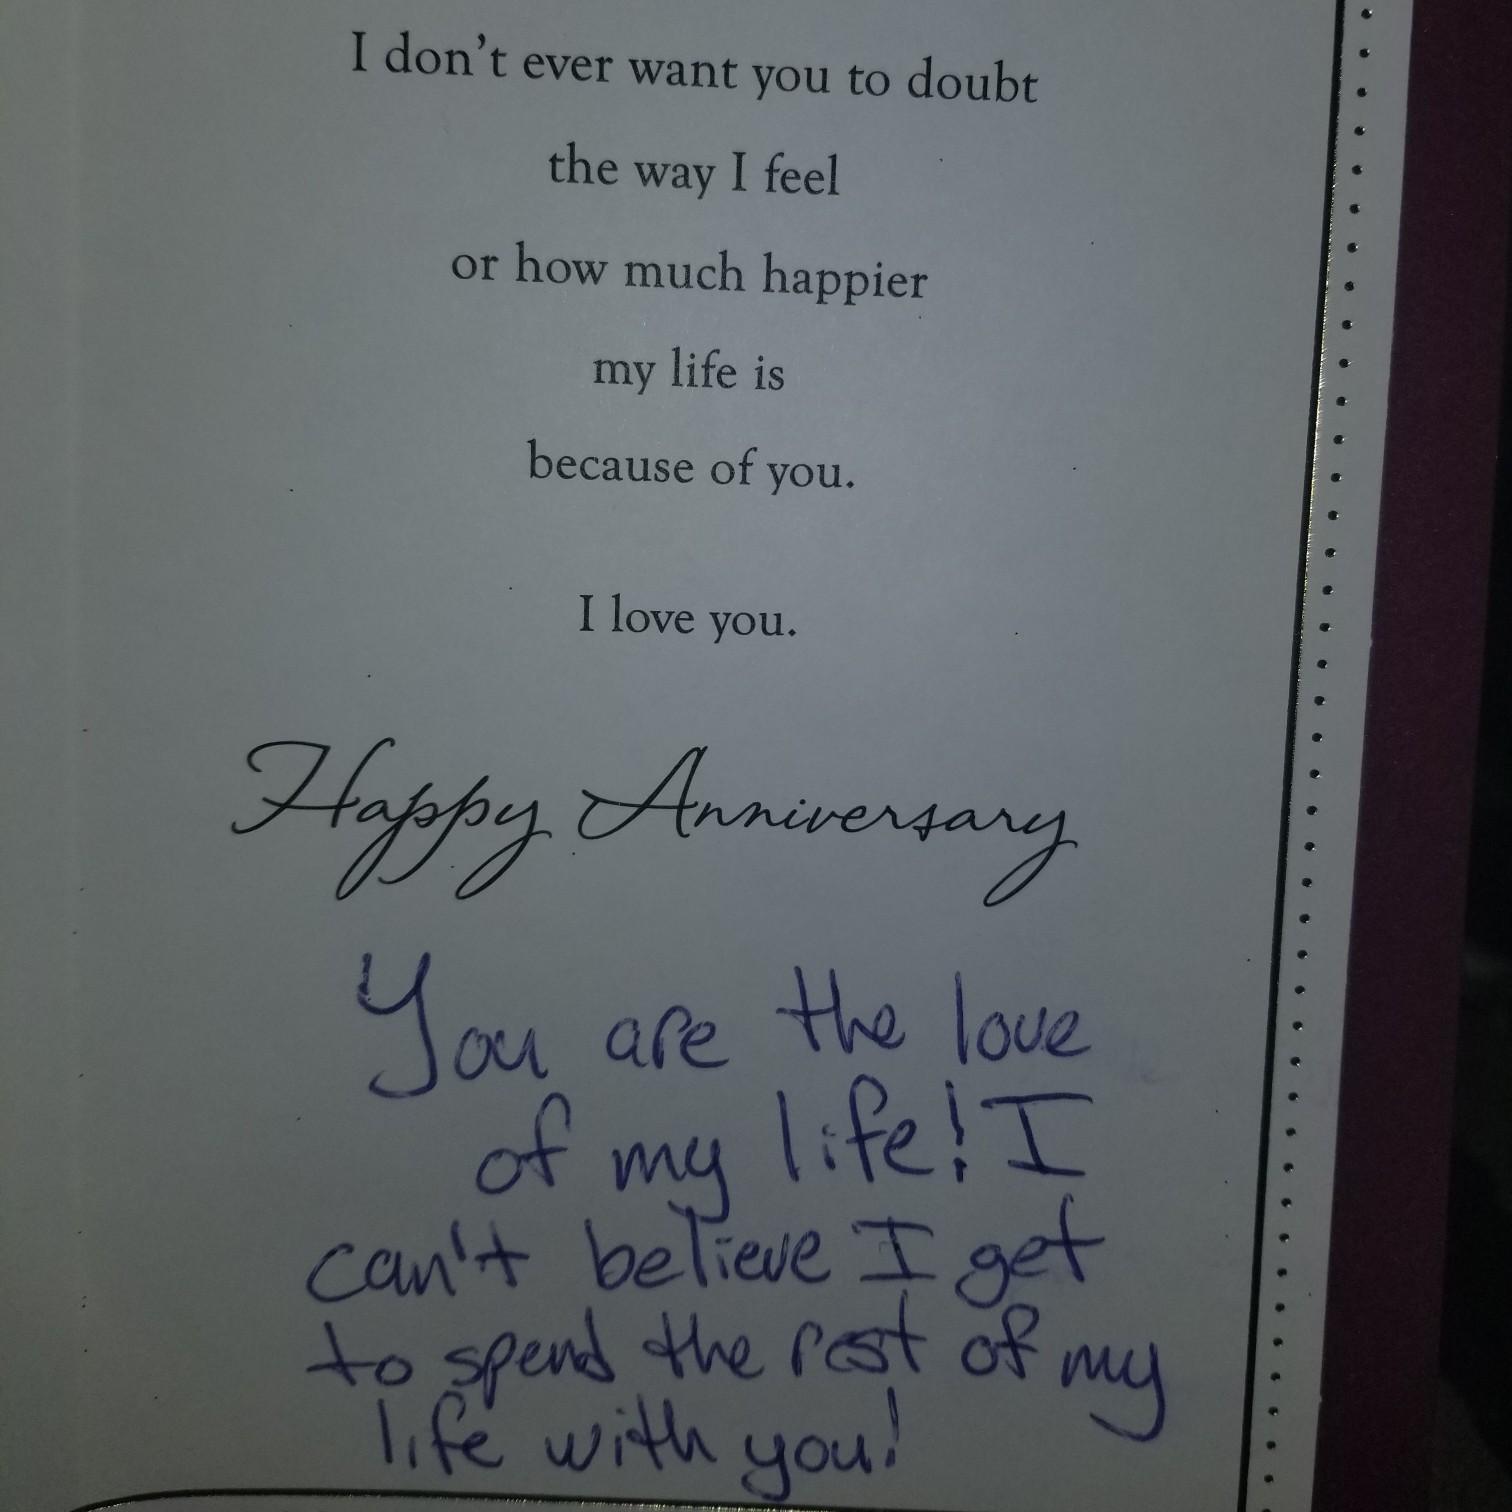 I don't ever want you to doubt
the way I feel
or how much happier
my life is
because of you.
I love you.
Happy Anniversary
You are the love
of my life! I
can't believe I get
to spend the rest of my
life with you!